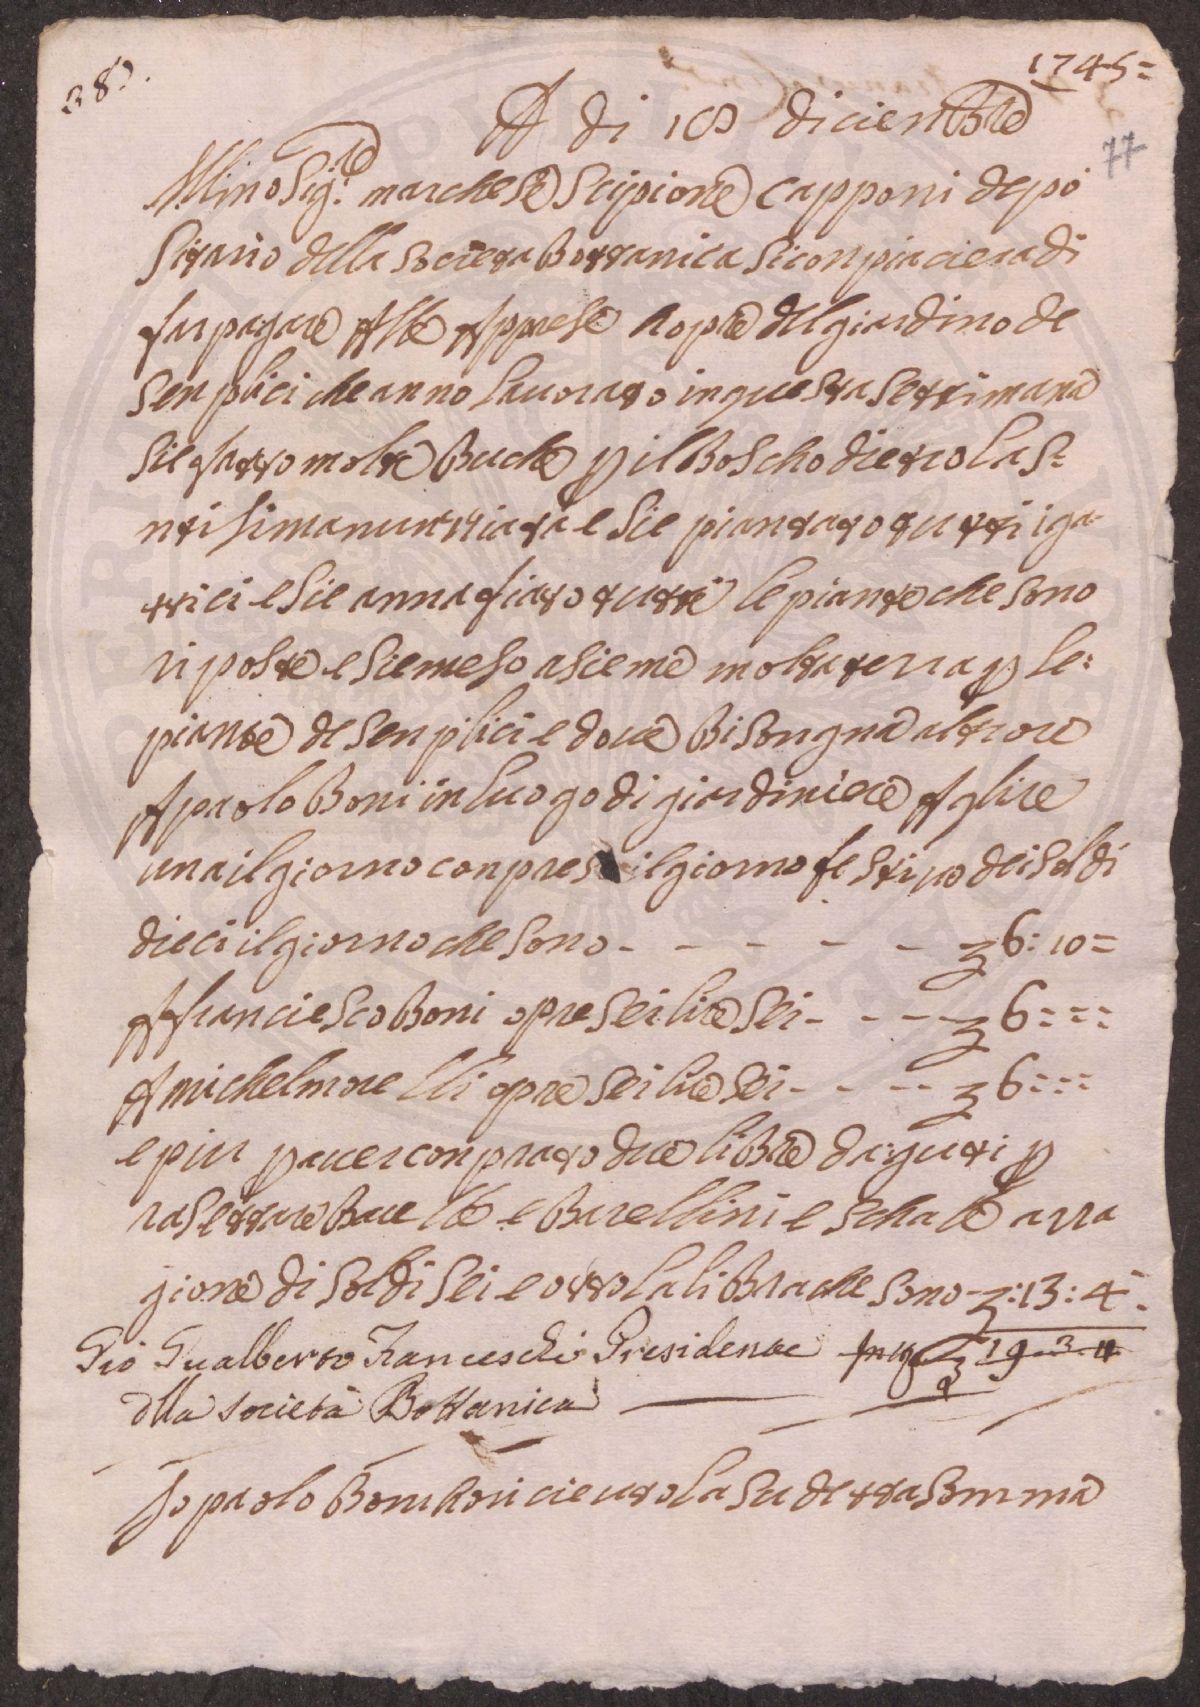 385.
1745=
77
A di 18 diciembre
Illmo Sig.re marchese Scipione Capponi depo
Sitario della Societa Bottanica Siconpiaciera di
far pagare Alle Apprese hopre del giardino de
Senplici che anno lavorato in questa Settimana
Sie fatto molte Buche p il Boscho dietro la S=
ntisima nuntiata e Sie piantato tutti i ga-
ttici e Sie annafiato tutte le piante che Sono
riposte e Sie meso asieme molta terra p le:
piante de Senplici e dove Bisongna altrove
A paolo Boni in luogo di giardiniere A lire
una il giorno conpreso il giorno festivo dei Soldi
dieci il giorno che Sono - - - - - - 6: 10=
A franciesco Boni opre Sei lire Sei- - - - 6:==
A michel morelli opre Sei lire Sei- - - - 6:==
e piu p aver conprato due libre daguti p
rasettare Baelle e Barellini e Schale arra
gione di Soldi Sei e otto la libra che Sono :13:4-
Gio Gualberto Franceschi Presidente 19-3-4
dlla Società Bottanica
Io paolo Boni ho ricieuto la Sudetta Somma